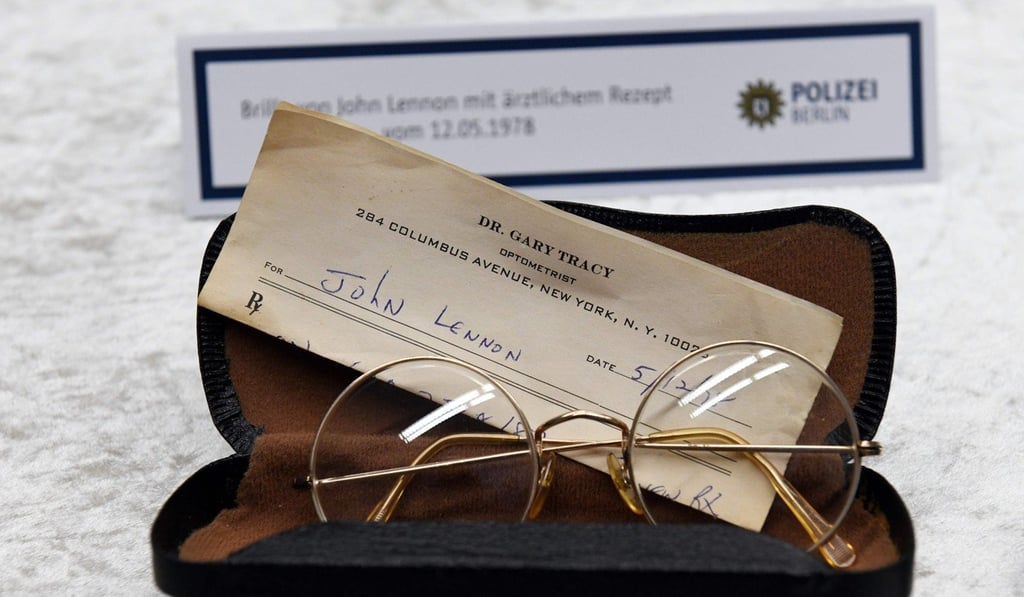 Brille von John Lennon mit ärztlichem Rezept
vom 12.05.1978
POLIZEI
BERLIN
DR. GARY TRACY
OPTOMETRIST
284 COLUMBUS AVENUE, NEW YORK, N. Y. 1002
FOR JOHN LENNON
DATE 5/12
Rx
RX